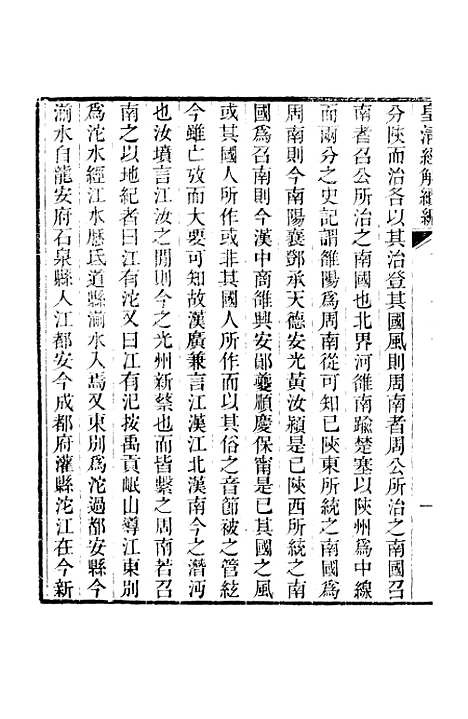 皇清經解續編
一
分陜而治各以其治登其國風則周南者周公所治之南國召
南者召公所治之南國也北界河雒南踰楚塞以陜州爲中線
而兩分之史記謂雒陽爲周南從可知已陜東所統之南國爲
周南則今南陽襄鄧承天德安光黃汝潁是已陜西所統之南
國爲召南則今漢中商雒興安鄖夔順慶保甯是已其國之風
或其國人所作或非其國人所作而以其俗之音節被之管絃
今雖亡攷而大要可知故漢廣兼言江漢江北漢南今之潛沔
也汝墳言江汝之閒則今之光州新蔡也而皆繫之周南若召
南之以地紀者曰江有沱又曰江有汜按禹貢岷山導江東別
爲沱水經江水歷氐道縣湔水入焉又東別爲沱過都安縣今
湔水自龍安府石泉縣入江都安今成都府灌縣沱江在今新